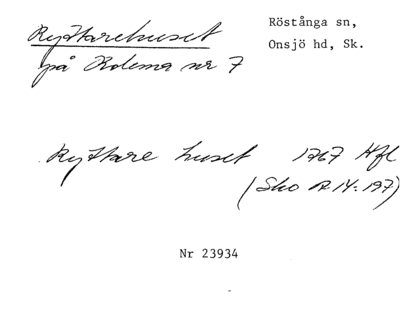 Ryttarehuset
på Kolema nr 7
Röstånga sn,
Onsjö hd, Sk.
Ryttare huset 1767 Hfl
(Sko R 14:197)
Nr 23934